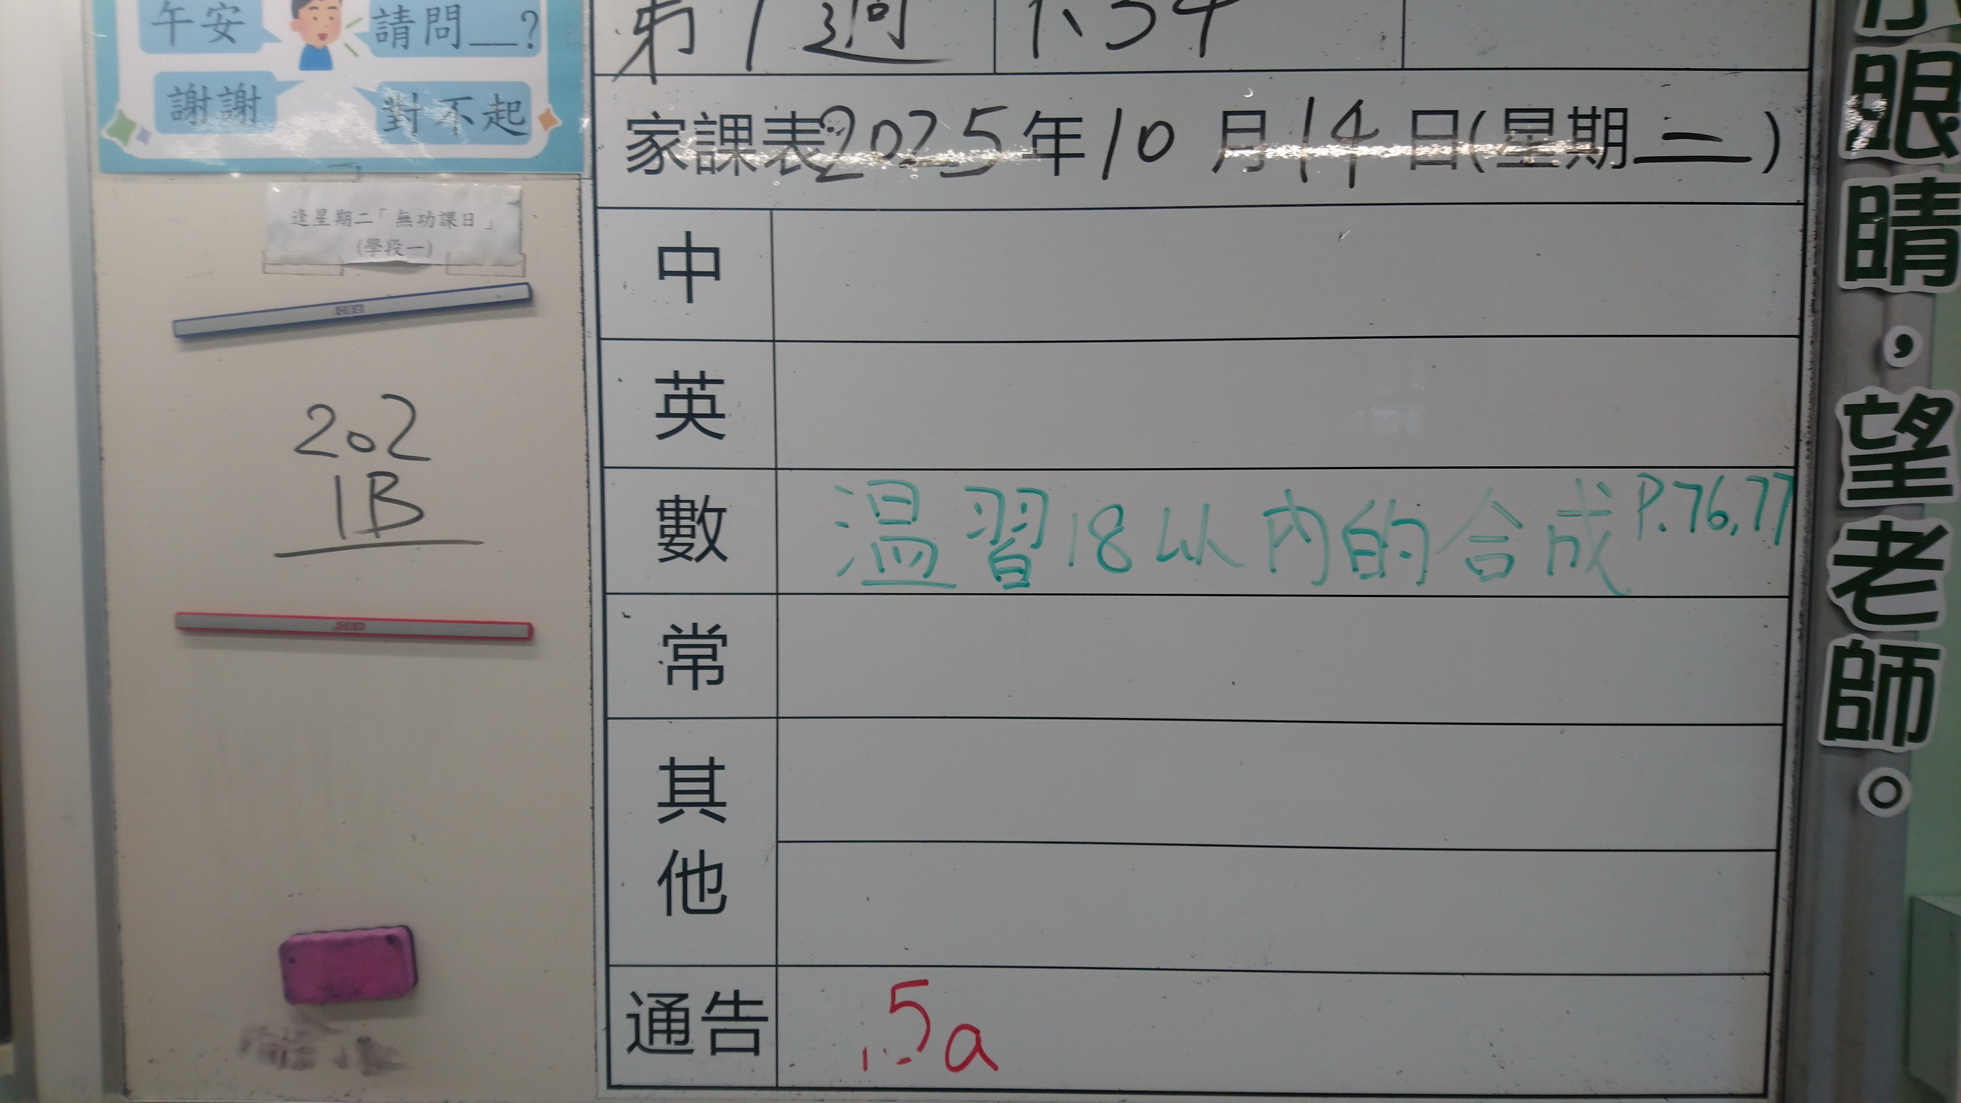 午安
請問__?
謝謝
對不起
逢星期二「無功課日」
(學段一)
202
1B
第 週
家課表2025年10月14日(星期二)
中
英
數 溫習18以內的合成 P.76,77
常
其他
通告 5a
眼睛，望老師。